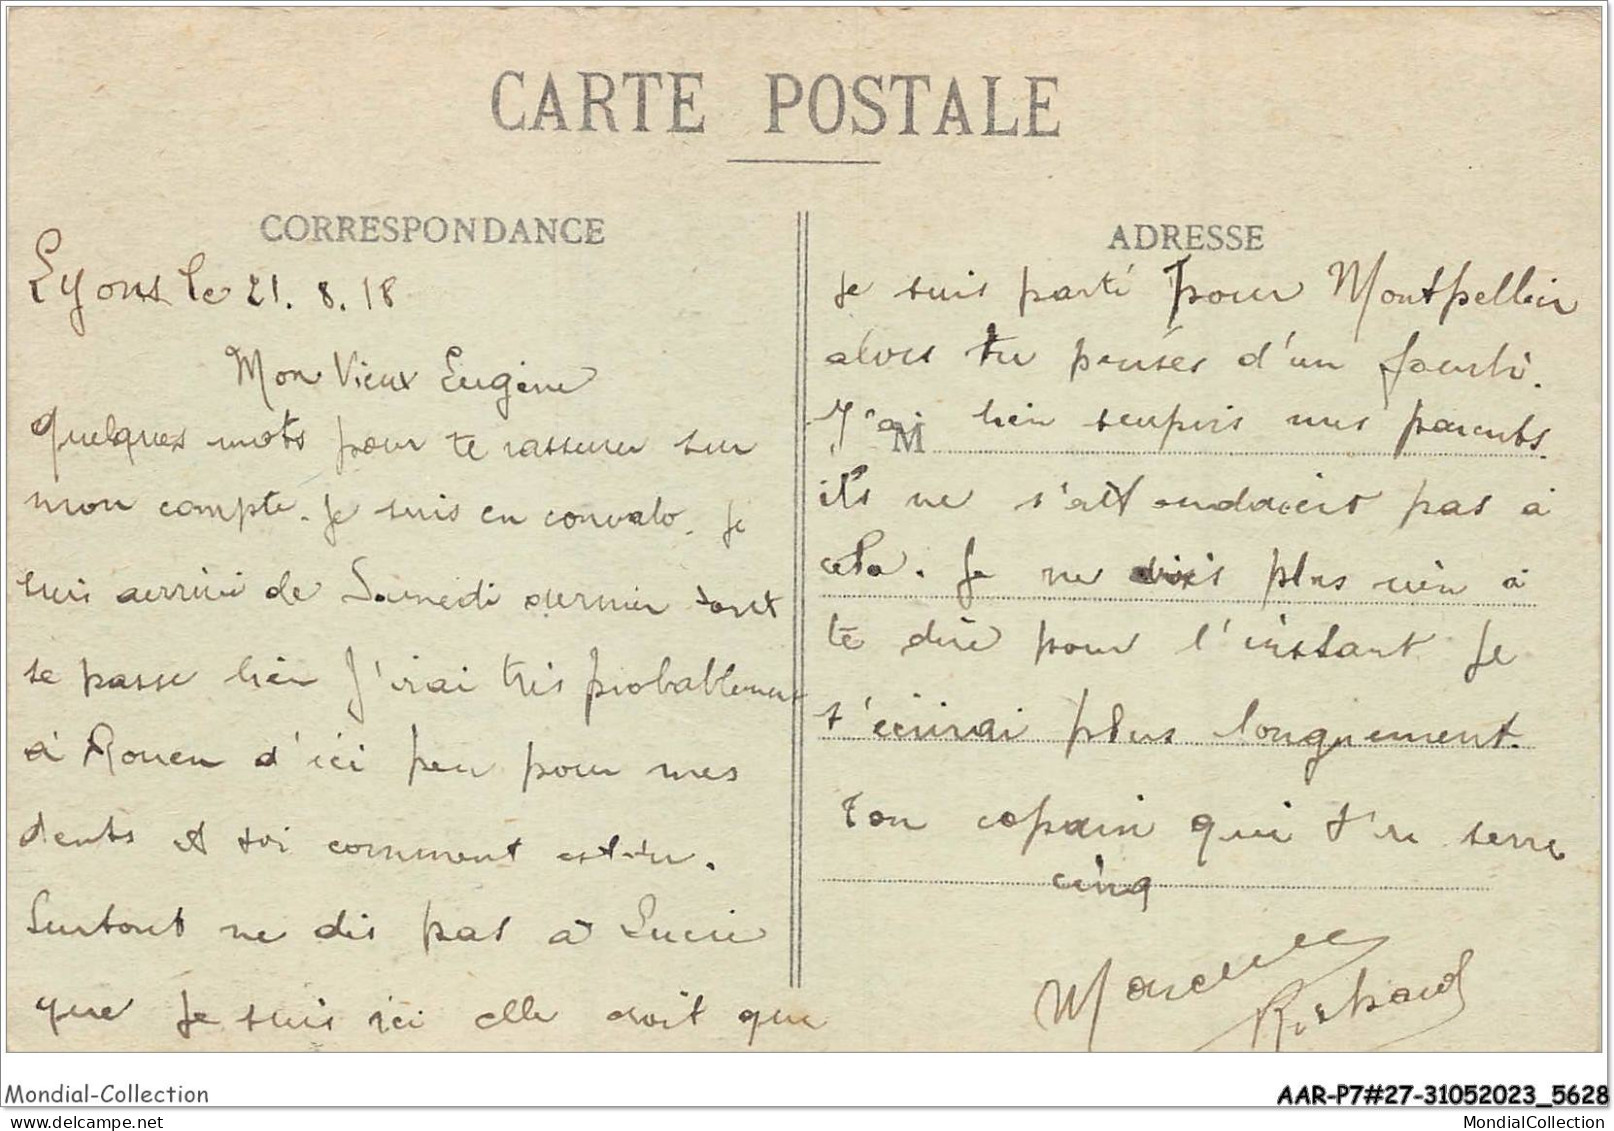 CARTE POSTALE
CORRESPONDANCE
Lyons le 21.8.18
Mon Vieux Eugène
Quelques mots pour te rassurer sur
mon compte. Je suis en convalo. Je
suis arrivé de Samedi dernier tout
se passe bien J'irai très probablement
à Rouen d'ici peu pour mes
dents et toi comment es-tu.
Surtout ne dis pas à Lucie
que Je suis ici elle croit que
ADRESSE
Je suis parti pour Montpellier
alors tu penses d'un
J'ai bien surpris mes parents
M
ils ne s'attendaient pas à
cela. Je ne vois plus rien à
te dire pour l'instant Je
t'écrirai plus longuement.
Ton copain qui t'en serre
cinq
Marcel
Richard
Mondial-Collection
AAR-P7#27-31052023_5628
Mondial-Collection
MondialCollection